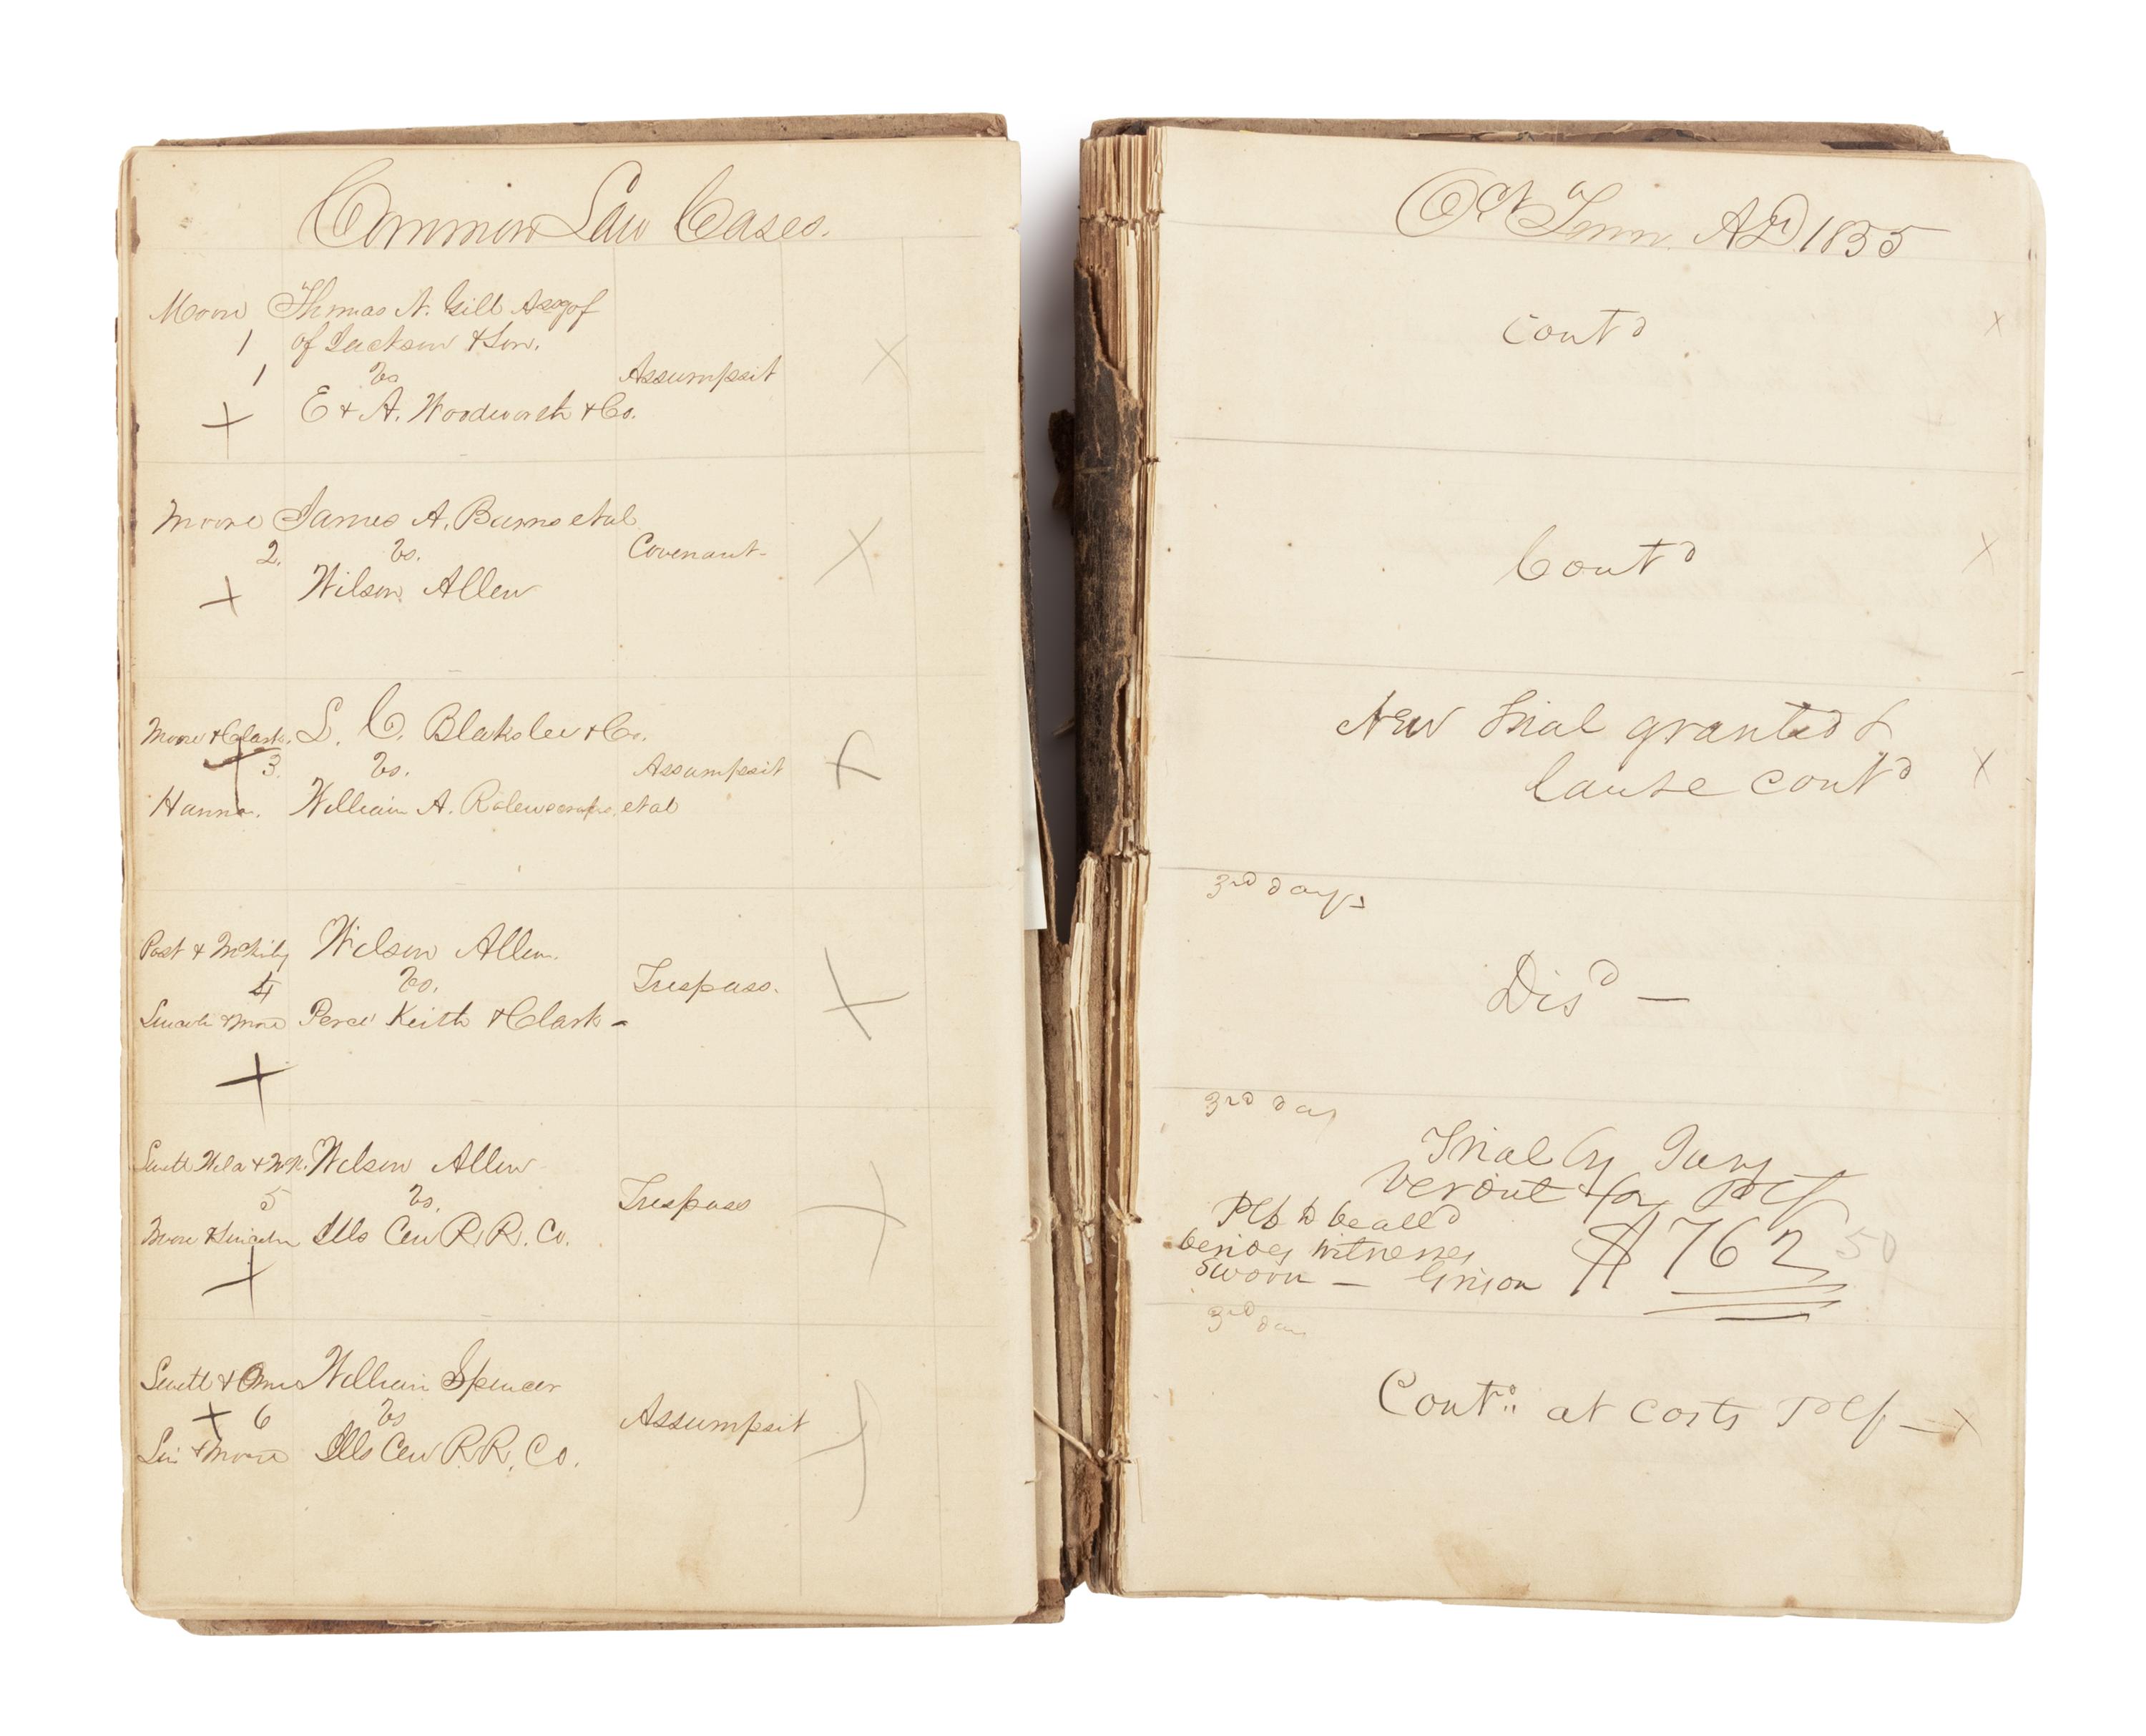 Common Law Cases.
Moore Thomas N. Gill Assg of
1 of Jackson & Son.
1 Vs Assumpsit
E & A. Woodworth & Co.
Moore James A. Burns et al
2. Vs. Covenant
Wilson Allen
Moore & Clark. L. C. Blakslee & Co.
3. Vs. Assumpsit
Hanna. William A. et al
Post & Wilson Allen.
4 Vs. Trespass.
Lincoln & Moore Perce Keith & Clark
Swett Wilson Allen
5 Vs. Trespass
Moore & Lincoln Ills Cen R.R. Co.
Swett & Orme William Spencer
6 Vs Assumpsit
Lin & Moore Ills Cen R.R. Co.
Oct Term AD 1855
Contd
Contd
New trial granted &
Cause contd
3rd day
Disd —
3rd day
Trial by Jury
Verdict for Plf
Plf to be alld
besides witnesses $762 50
sworn —
3rd day
Contd at costs Plf —